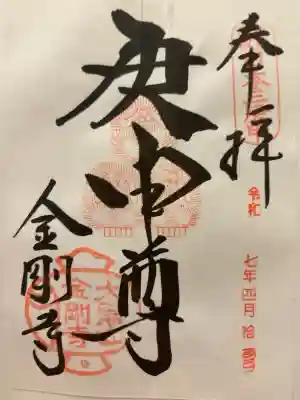 奉拝
令和
七年四月拾
庚申尊
金剛寺
金剛寺